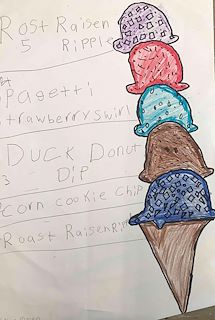 Rost Raisen
5 Ripple
Pagetti
trawberry swirl
Duck Donut
3 Dip
corn cookie chip
Roast Raisen Rip